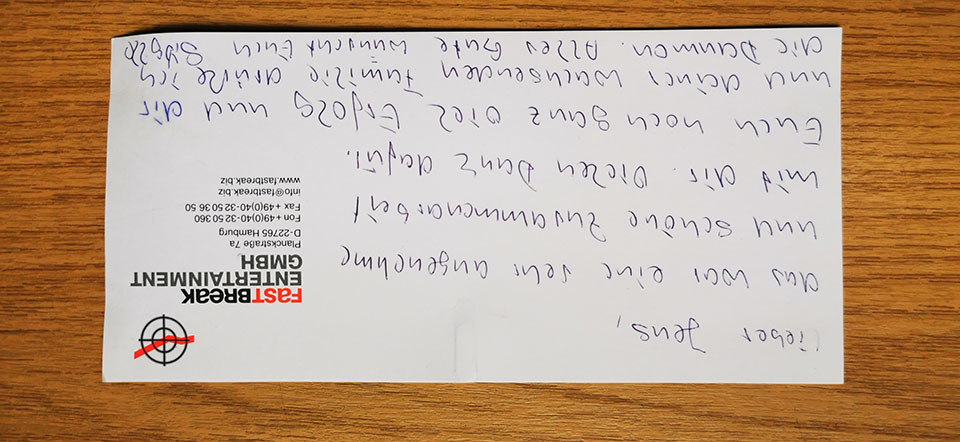 Lieber Jens,
das war eine sehr angenehme
und schöne Zusammenarbeit
mit dir. Vielen Dank dafür.
Euch noch ganz viel Erfolg und dir
und deiner wachsenden Familie drücke ich
die Daumen. Alles Gute wünscht Euch
FaSTBReaK
ENTERTAINMENT
GMBH
Planckstraße 7a
D-22765 Hamburg
Fon +49(0)40-32 50 360
Fax +49(0)40-32 50 36 50
info@fastbreak.biz
www.fastbreak.biz